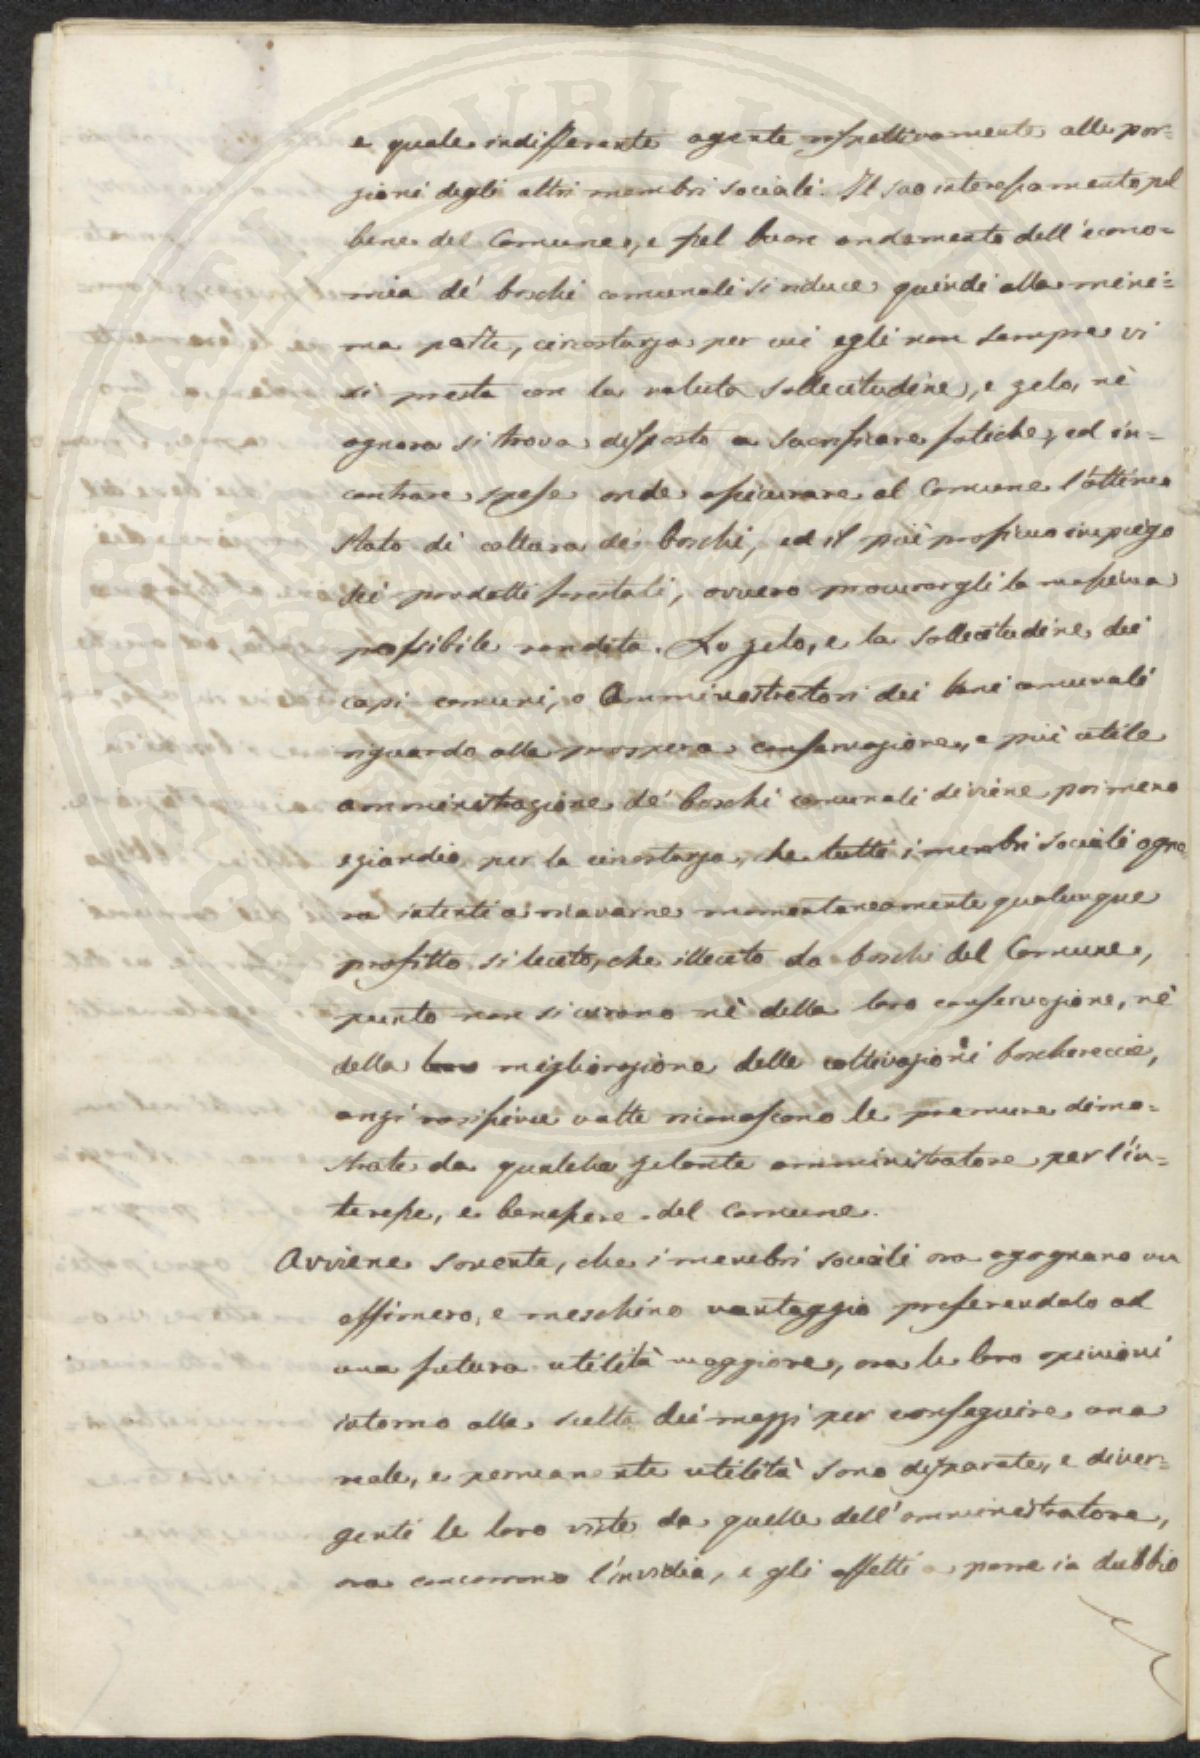 e quale indifferente agente rispettivamente alle por=
zioni degli altri membri sociali. Il suo interessamento pel
bene del Comune, e pel buon andamento dell'econo=
mia de' boschi comunali si riduce quindi alla mini=
ma parte, circostanza per cui egli non sempre vi
si presta con la voluta sollecitudine, e zelo, nè
ognora si trova disposto a sacrificare fatiche, ed in=
contrare spese onde assicurare al Comune l'ottimo
stato di coltura de' boschi, ed il più proficuo impiego
dei prodotti forestali, ovvero procurargli la massima
possibile rendita. Lo zelo, e la sollecitudine dei
capi comuni, o Amministratori dei beni comunali
riguardo alla prospera conservazione, e più utile
amministrazione de' boschi comunali diviene poi meno
eziandio per la circostanza, che tutti i membri sociali ogno
ra intenti a ricavarne momentaneamente qualunque
profitto sì lecito, che illecito da boschi del Comune,
punto non si curano nè della loro conservazione, nè
della migliorazione delle coltivazioni boschereccie,
anzi nonosscono le premure dimo=
strate da qualche zelante amministratore per l'in=
teresse, e benessere del Comune.
Avviene sovente, che i membri sociali ora agognano un
effimero, e meschino vantaggio preferendolo ad
una futura utilità maggiore, ora le loro opinioni
intorno alla scelta dei mezzi per conseguire una
reale, e permanente utilità sono disparate, e diver=
genti le loro viste da quelle dell'amministratore,
ora concorrono l'invidia, e gli affetti a porre in dubbio